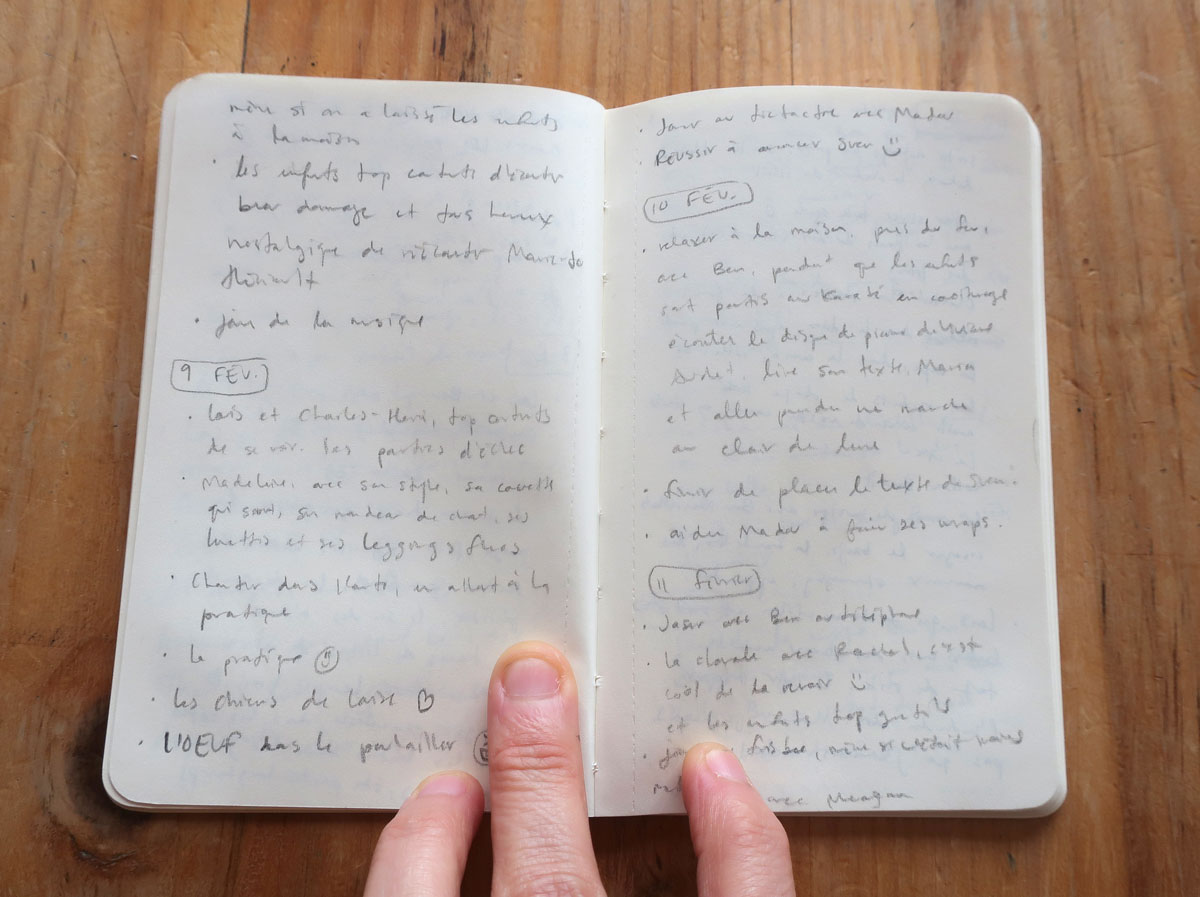 même si on a laissé les enfants
à la maison
• les enfants trop contents d'écouter
beau dommage et tous heureux
nostalgique de réécouter Marie-Jo
Thériault
• jouer de la musique
9 FÉV.
• Loïs et Charles-Henri, trop contents
de se voir. Les parties d'échec
• Madeleine, avec son style, sa
qui sourit, son de chat, ses
lunettes et ses leggings fluos
• Chanter dans l'auto, en allant à la
pratique
• la pratique ☺
• les chiens de Laïse ♡
• L'OEUF dans le poulailler
• Jouer au tictactoe avec Mador
• Réussir à avancer Sven ☺
10 FÉV.
• relaxer à la maison, près du feu,
avec Ben, pendant que les enfants
sont partis au Karaté en covoiturage
écouter le disque de piano de Viviane
Audet, lire son texte,
et aller prendre une marche
au clair de lune
• finir de placer le texte de Sven.
• aider Mador à faire ses wraps.
11 février
• Jaser avec Ben au téléphone
• la chorale avec Rachel, c'est
cool de la revoir ☺
et les enfants trop gentils
• frisbee, même si c'était moins
avec Meagan